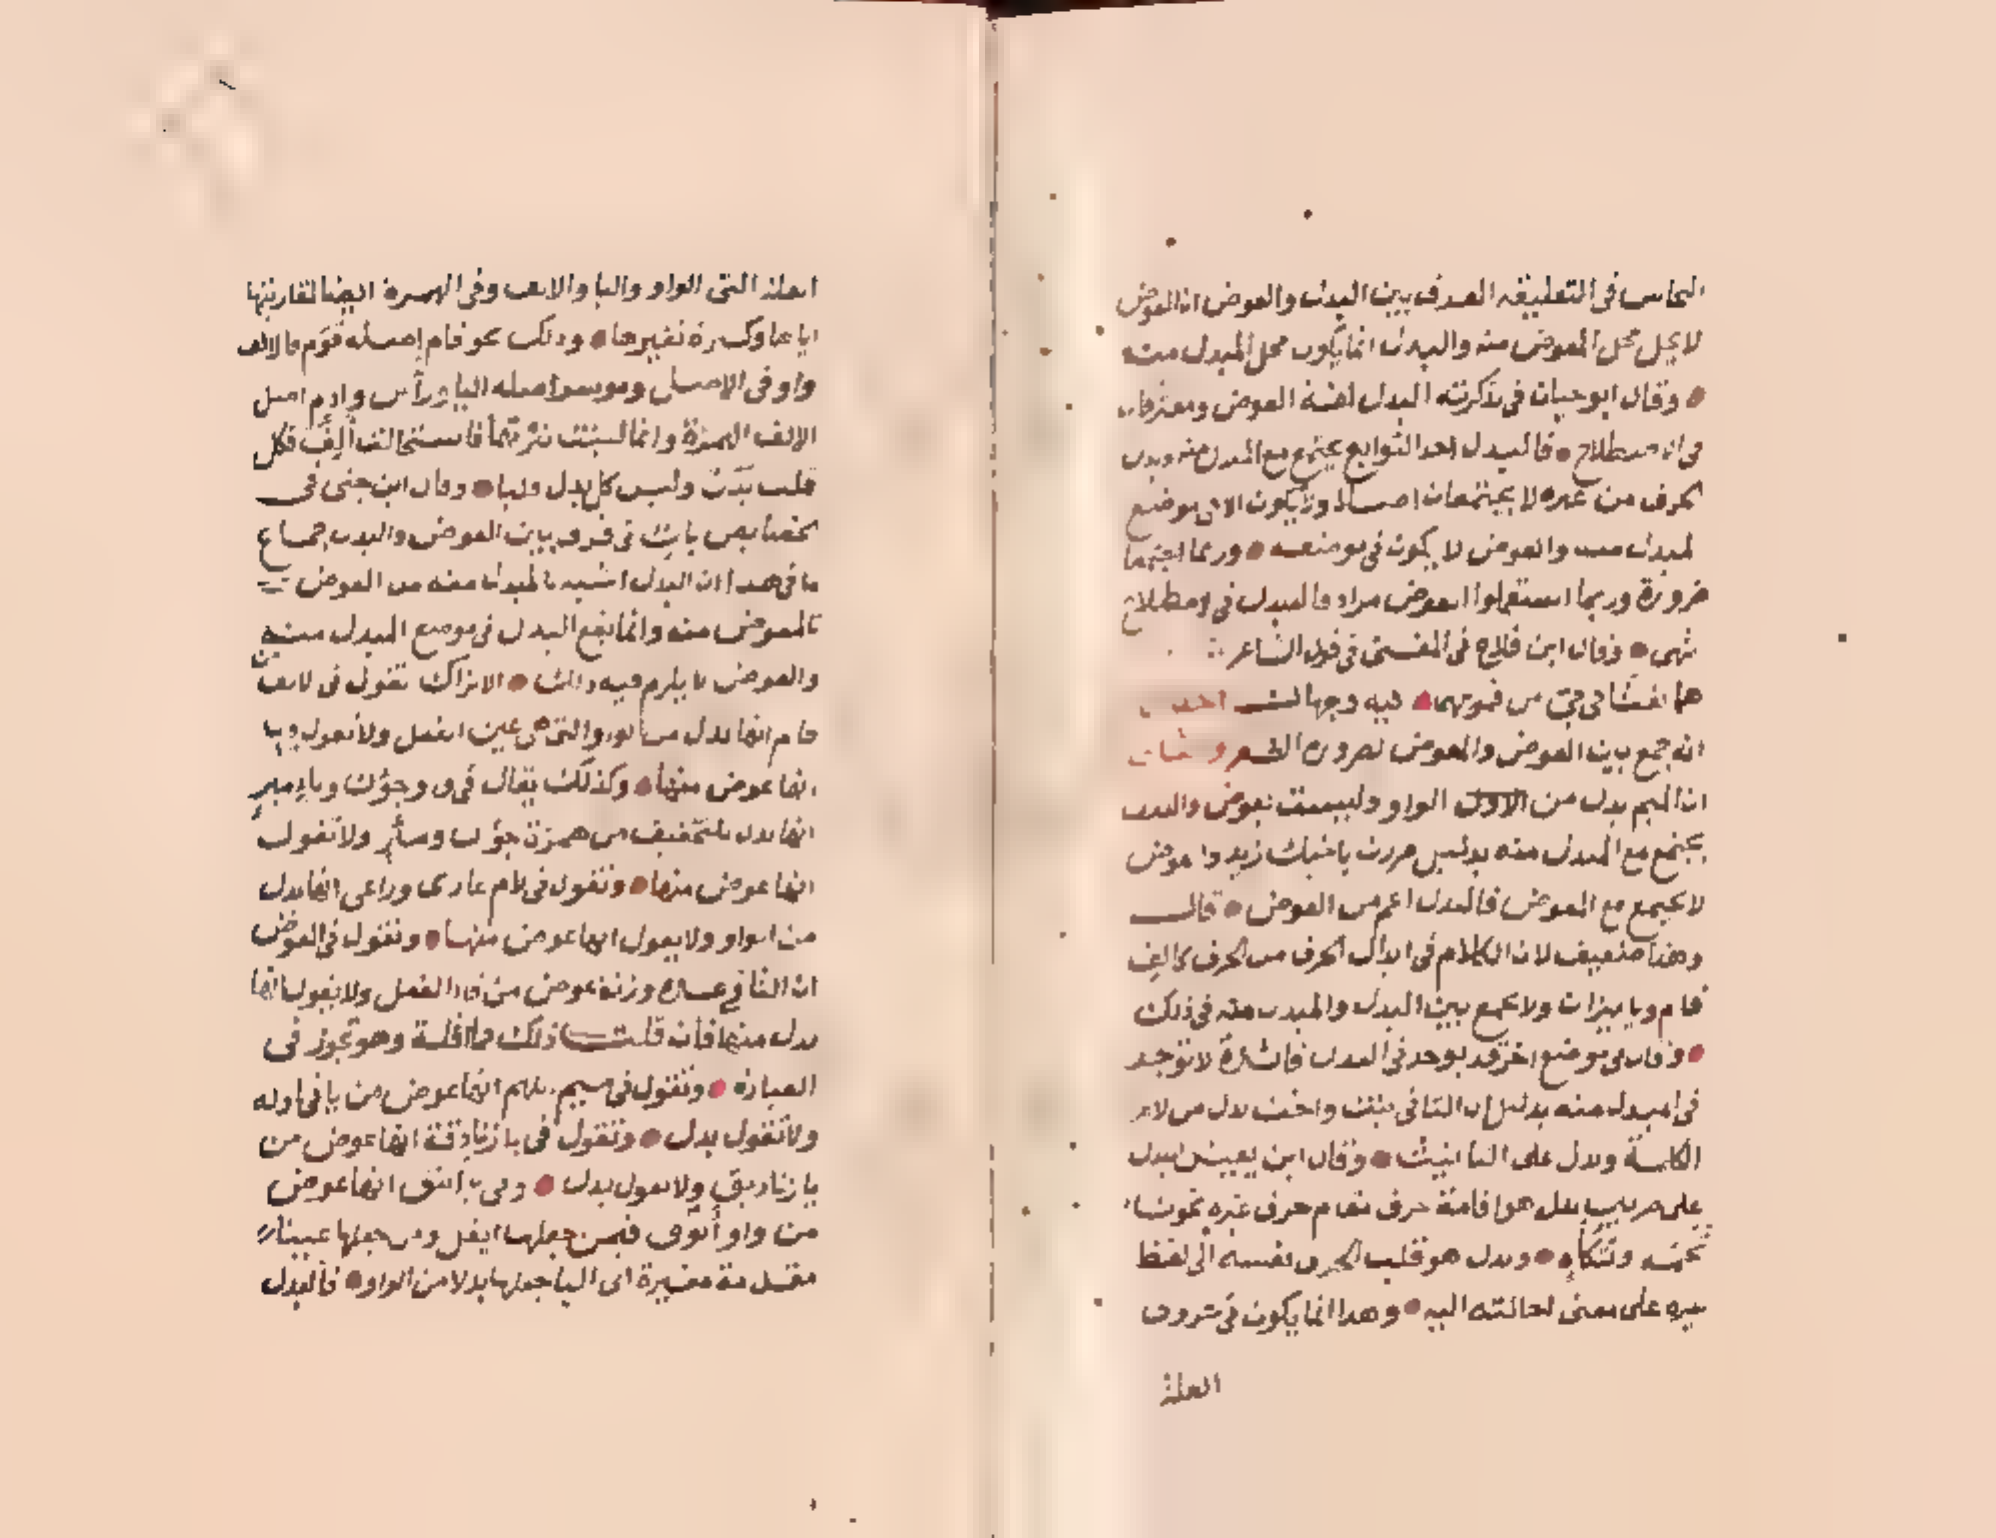 النحاس في التعليقة الفرق بين البدل والعوض ان العوض
لا يحل محل المعوض منه والبدل انما يكون محل المبدل منه
وقال ابو حيان في تذكرته البدل لغة العوض ويفترقان
في الاصطلاح فالبدل احد التوابع يجتمع مع المبدل منه وبدل
الحرف من غيره لا يجتمعان اصلا ولا يكون الا في موضع
المبدل منه والعوض لا يكون في موضعه وربما اجتمعا
ضرورة وربما استعملوا العوض مرادفا للبدل في اصطلاح
انتهى وقال ابن فلاح في المغني في قول الشاعر
هما نفثا في في من فمويهما فيه وجهان احدهما
انه جمع بين العوض والمعوض لضرورة الشعر و
ان الميم بدل من الاول الواو وليست بعوض والبدل
يجتمع مع المبدل منه بدليل مررت باخيك زيد والعوض
لا يجتمع مع المعوض فالبدل اعم من العوض قال
وهذا ضعيف لان الكلام في ابدال الحرف من الحرف كالف
قام ويا ميزان ولا يجمع بين البدل والمبدل منه في ذلك
وقال في موضع اخر قد يوجد في البدل فائدة لا توجد
في المبدل منه بدليل ان التا في بنت واخت بدل من لام
الكلمة وتدل على التانيث وقال ابن يعيش البدل
على ضربين بدل هو اقامة حرف مقام حرف غيره نحو تا
تخمة وتكأة وبدل هو قلب الحرف نفسه الى لفظ
غيره على معنى احالته اليه وهذا انما يكون في حروف
العلة
العلة التي الواو واليا والالف وفي الهمزة ايضا لمقاربتها
اياها وكثرة تغييرها وذلك نحو قام اصله قوم فالالف
واو في الاصل وموسر اصله اليا وراس وادم اصل
الالف الهمزة وانما لينت نبرتها فاستحالت الفا فكل
قلب بدل وليس كل بدل قلبا وقال ابن جني في
الخصايص باب في فرق بين العوض والبدل جماع
ما في هذا ان البدل اشبه بالمبدل منه من العوض
بالمعوض منه وانما يقع البدل في موضع المبدل منه
والعوض لا يلزم فيه ذلك الا تراك تقول في الالف من
قام انها بدل من الواو التي هي عين الفعل ولا تقول فيها
انها عوض منها وكذلك يقال في واو جون ويا مير
انها بدل للتخفيف من همزة جؤن ومئر ولا تقول
انها عوض منها وتقول في لام غازي وداعي انها بدل
من الواو ولا تقول انها عوض منها وتقول في العوض
ان التا في عدة وزنة عوض من فا الفعل ولا تقول انها
بدل منها فان قلت ذلك فما اقله وهو تجوز في
العبارة وتقول في ميم اللهم انها عوض من يا في اوله
ولا تقول بدل وتقول في تا زنادقة انها عوض من
يا زناديق ولا تقول بدل وفي يا اينق انها عوض
من واو انوق فيمن جعلها ايفل ومن جعلها عينا
مقدمة مغيرة الى اليا جعلها بدلا من الواو فالبدل